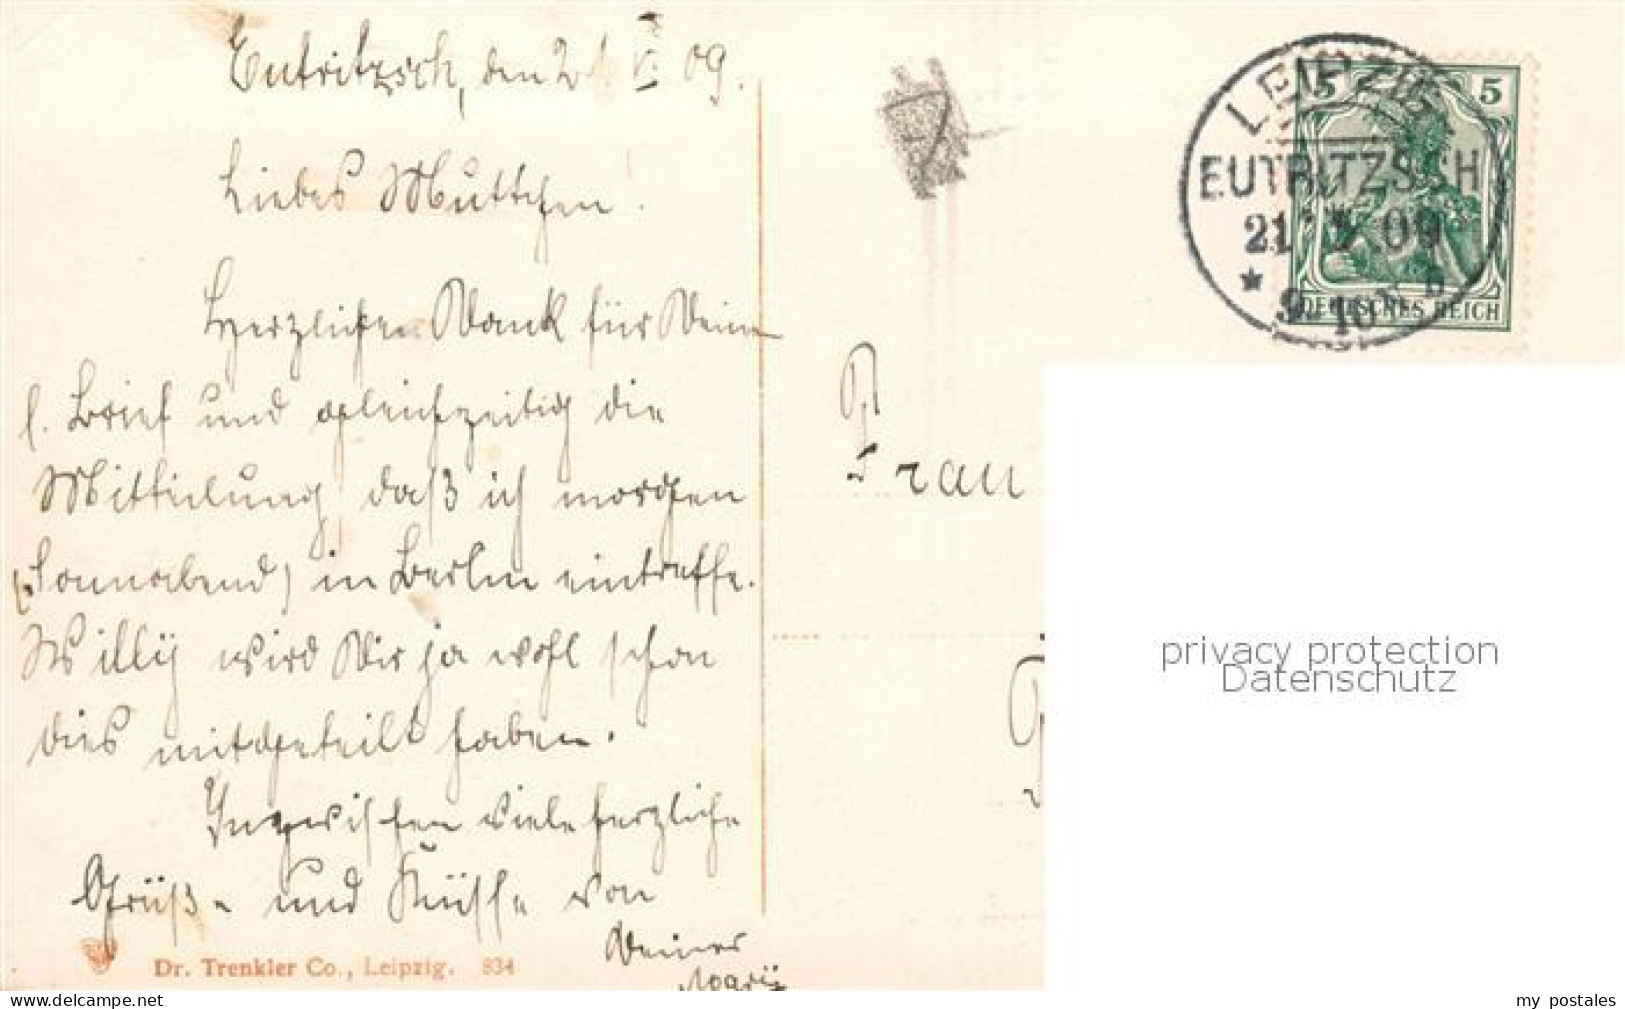 Eutritzsch, den 21. V. 09.
Liebes Muttchen.
Herzlichen Dank für Deine
l. Brief und gleichzeitig die
Mitteilung, daß ich morgen
(Sonnabend) in Berlin eintreffe.
Willy wird Dir ja wohl schon
dies mitgeteilt haben.
Inzwischen viele herzliche
Grüße und Küsse von
Deiner
Dr. Trenkler Co., Leipzig. 834
Frau
LEIPZIG
EUTRITZSCH
21 5 09
9-10 N
5 5
DEUTSCHES REICH
privacy protection
Datenschutz
my postales